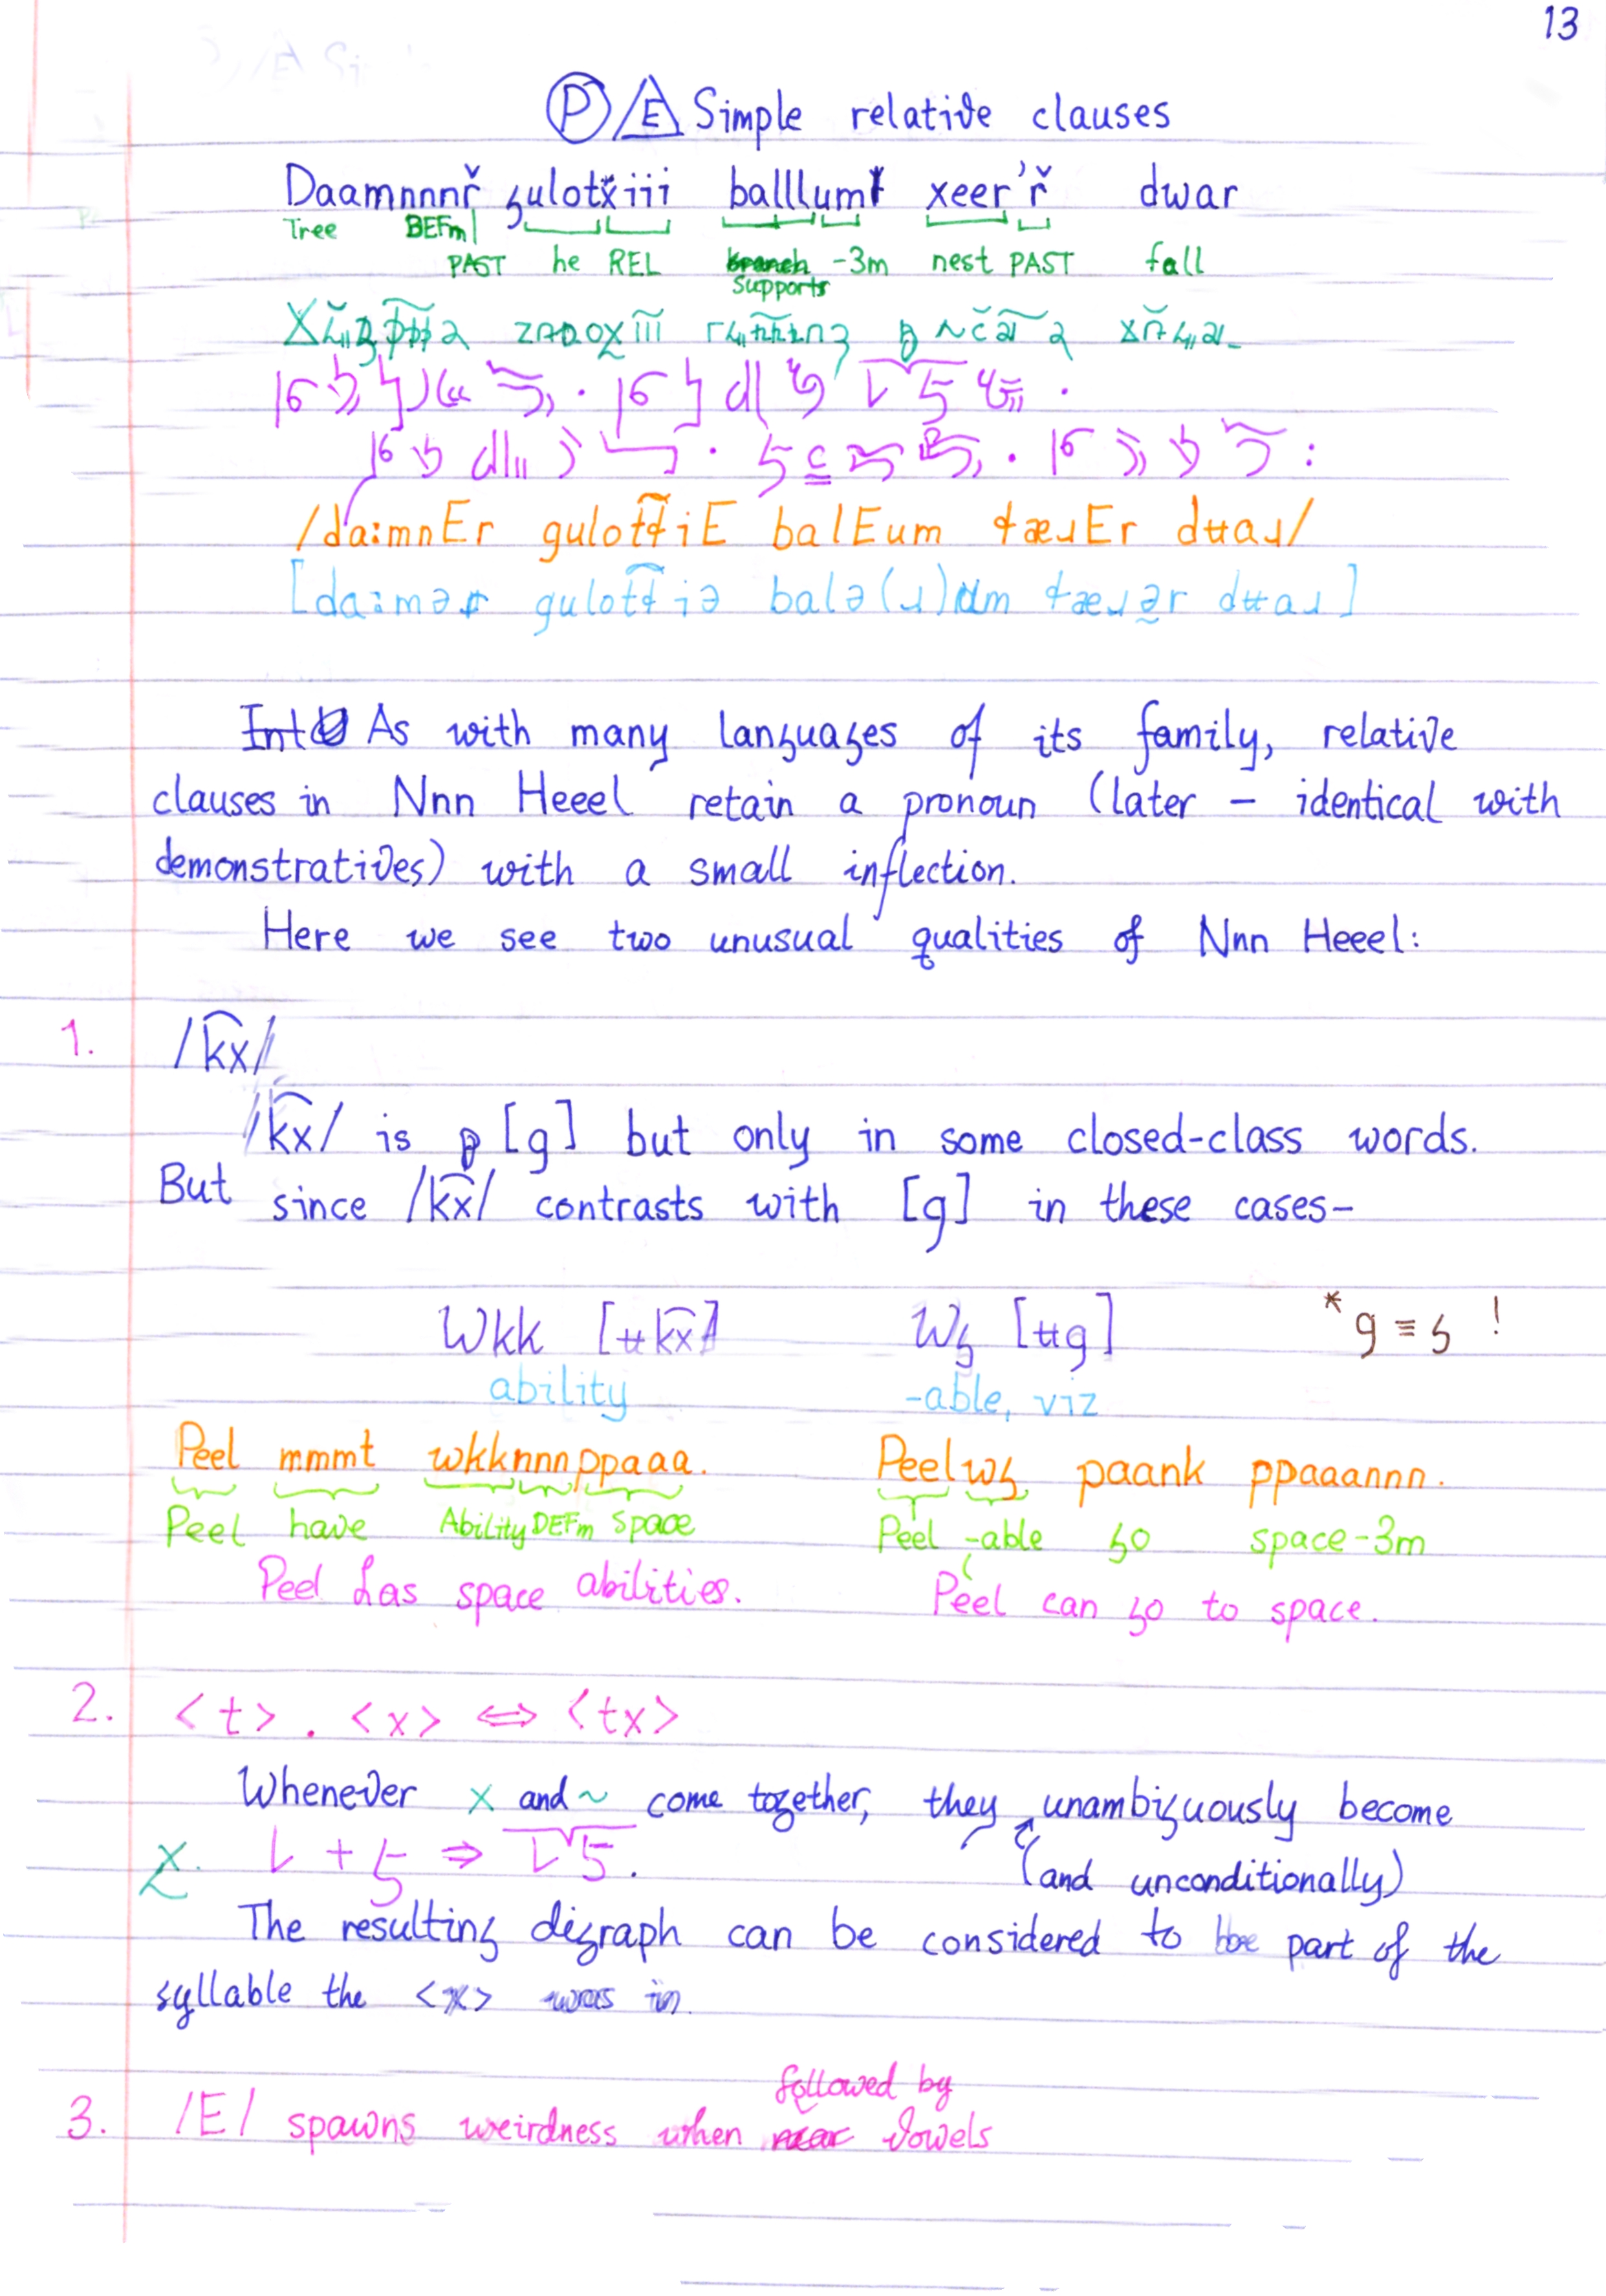 13
P E Simple relative clauses
Daamnnnř gulotẍiii balllum xeer'ř dwar
Tree DEFm
PAST he REL -3m nest PAST fall
supports
/da:mnEr gulot͡ɬiE balEum ɬæɹEr dʉaɹ/
[da:mər gulot͡ɬiə balə(ɹ)um ɬæɹə̰r dʉaɹ]
As with many languages of its family, relative
clauses in Nnn Heeel retain a pronoun (later – identical with
demonstratives) with a small inflection.
Here we see two unusual qualities of Nnn Heeel:
1. /k͡x/
/k͡x/ is [g] but only in some closed-class words.
But since /k͡x/ contrasts with [g] in these cases–
Wkk [ʉk͡x] Wg [ʉg] *g ≡ ᵹ !
ability -able, viz
Peel mmmt wkknnnppaaa. Peelwg paank ppaaannn.
Peel have Ability DEFm Space Peel -able go space-3m
Peel has space abilities. Peel can go to space.
2. <t> . <x> ⇔ <tx>
Whenever x and ~ come together, they unambiguously become
(and unconditionally)
The resulting digraph can be considered to be part of the
syllable the <x> was in.
followed by
3. /E/ spawns weirdness when vowels